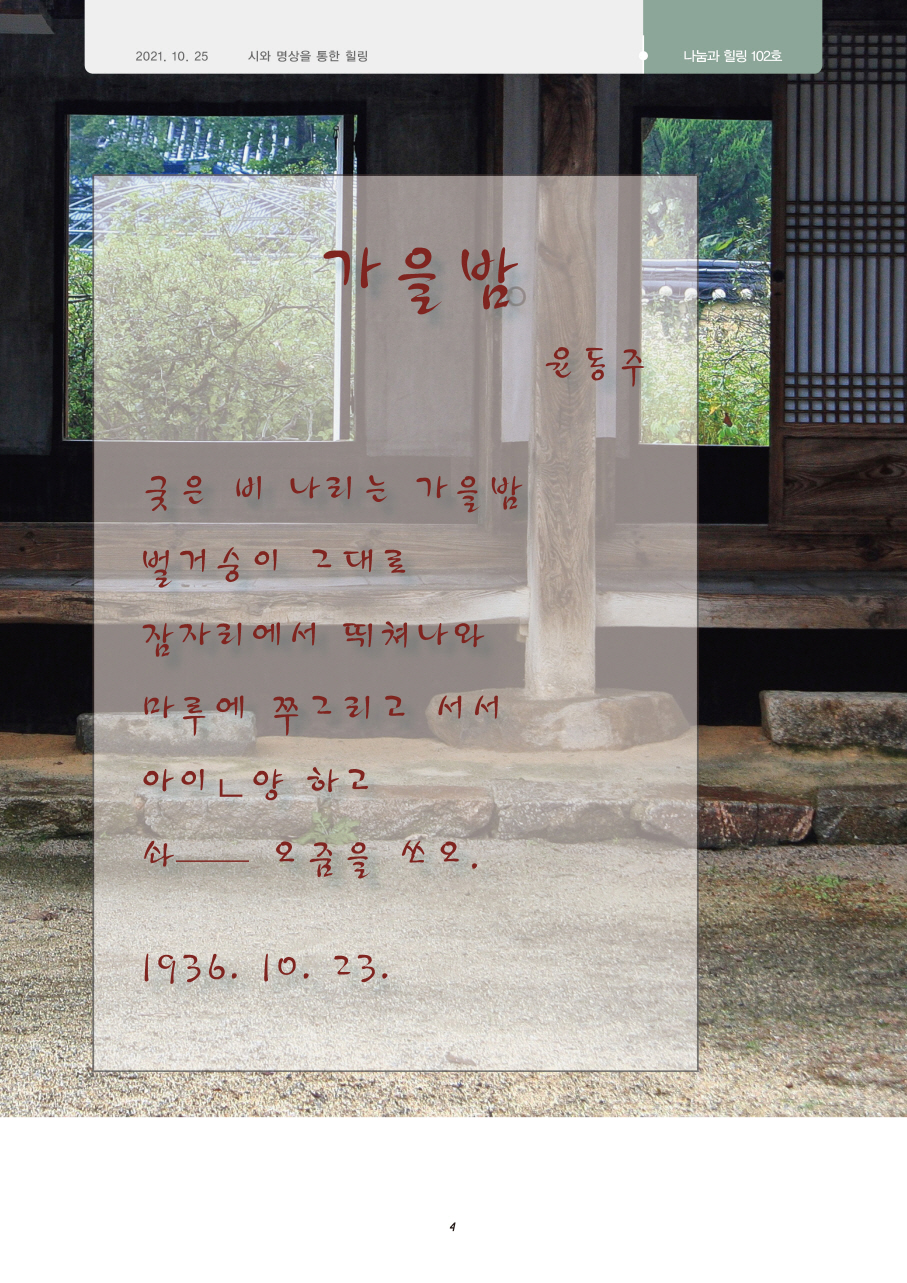 2021. 10. 25 시와 명상을 통한 힐링 나눔과 힐링 102호
가을밤
윤동주
궂은 비 나리는 가을밤
벌거숭이 그대로
잠자리에서 뛰쳐나와
마루에 쭈그리고 서서
아이ㄴ양 하고
솨―― 오줌을 쏘오.
1936. 10. 23.
4